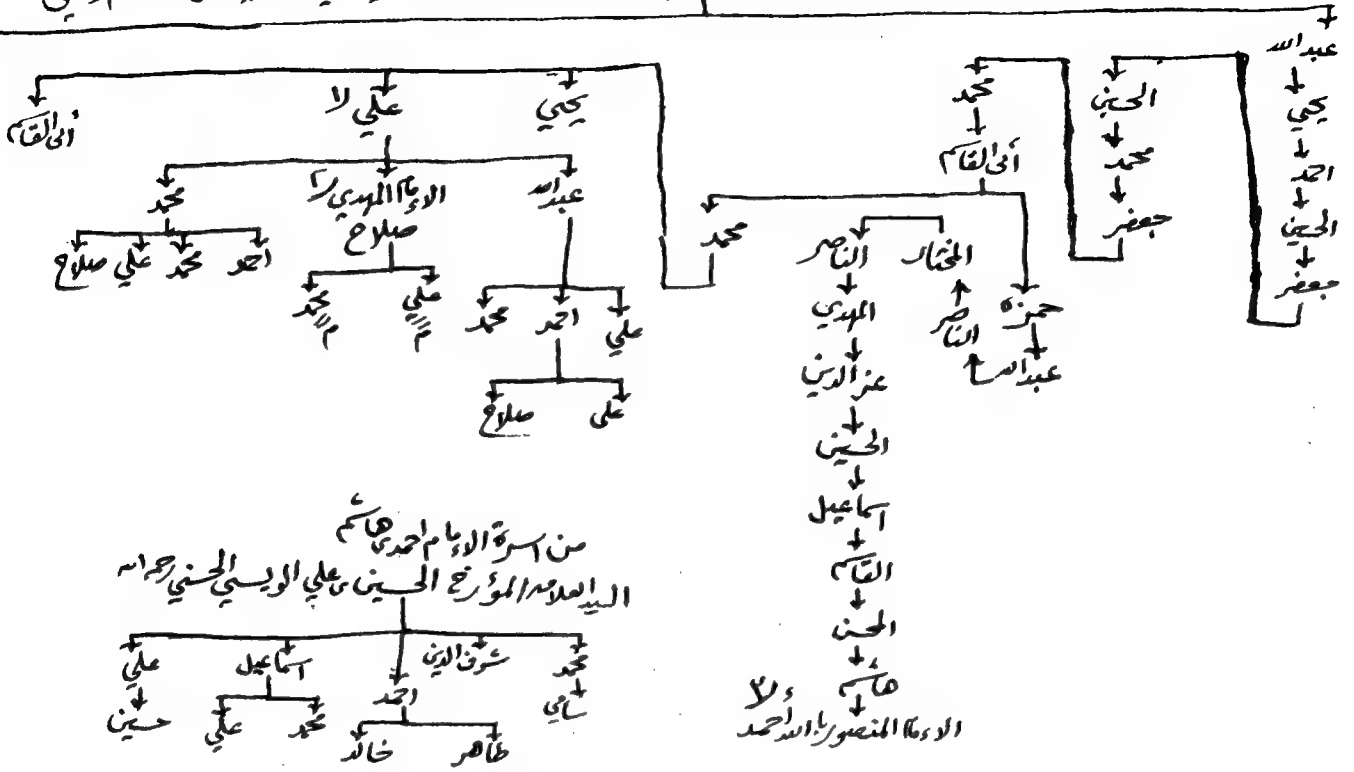 عبدالله
يحي
احمد
الحسين
جعفر
الحسين
محمد
جعفر
محمد
أبى القاسم
حمزه
عبدالله
الناصر
المختار
الناصر
المهدي
عز الدين
الحسين
اسماعيل
القاسم
الحسن
هاشم
الامام المنصور بالله احمد
محمد
يحي
علي
أبى القاسم
عبدالله
الامام المهدي
صلاح
محمد
علي
احمد
محمد
علي
صلاح
علي
محمد
احمد
محمد
علي
صلاح
من اسرة الامام احمد بن هاشم
السيد العلامه المؤرخ الحسين بن علي الويسي الحسني رحمه الله
محمد
سامي
شرف الدين
احمد
طاهر
خالد
اسماعيل
محمد
علي
علي
حسين